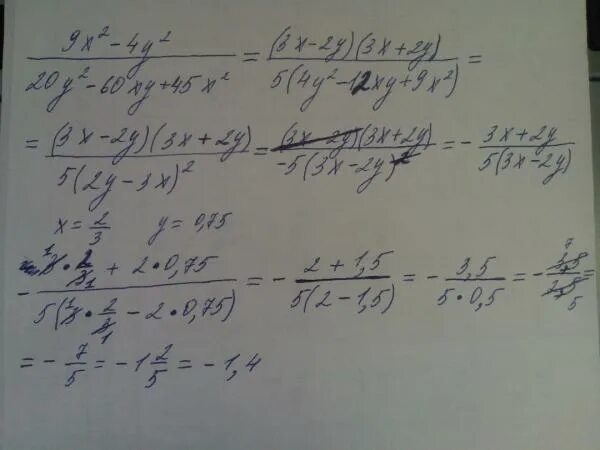 (9x² - 4y²)/(20y² - 60xy + 45x²) = ((3x - 2y)(3x + 2y))/(5(4y² - 12xy + 9x²)) =
= ((3x - 2y)(3x + 2y))/(5(2y - 3x)²) = ((3x - 2y)(3x + 2y))/(-5(3x - 2y)²) = - (3x + 2y)/(5(3x - 2y))
x = 2/3 y = 0,75
- (3 · 2/3 + 2 · 0,75)/(5(3 · 2/3 - 2 · 0,75)) = - (2 + 1,5)/(5(2 - 1,5)) = - 3,5/(5 · 0,5) = - 3,5/2,5 =
= - 7/5 = -1 2/5 = -1,4